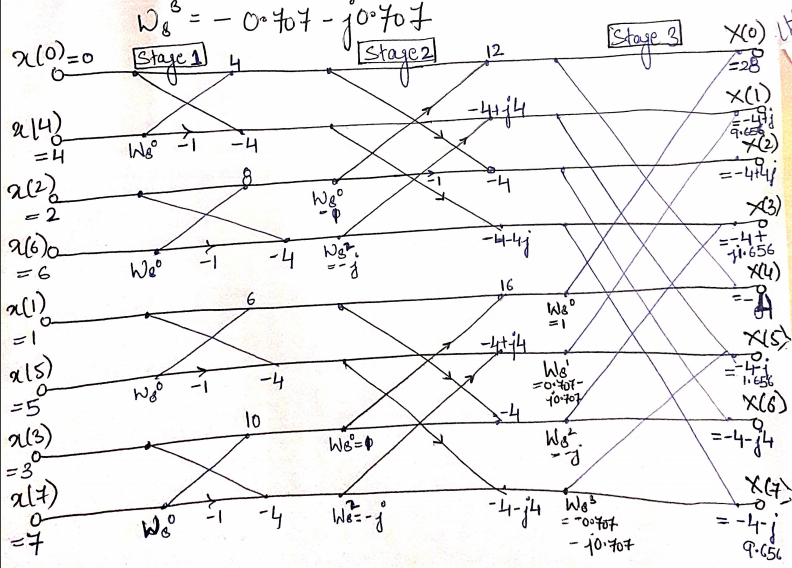 W8³ = - 0.707 - j0.707
Stage 1
Stage 2
Stage 3
x(0)=0
4
12
X(0)
=28
x(4)
=4
W8⁰
-1
-4
-4+j4
X(1)
=-4+j
9.656
x(2)
=2
8
W8⁰
-1
-4
X(2)
=-4+4j
x(6)
=6
W8⁰
-1
-4
W8²
=-j
-4-4j
X(3)
=-4+
j1.656
x(1)
=1
6
16
W8⁰
=1
X(4)
=-4
x(5)
=5
W8⁰
-1
-4
-4+j4
W8¹
=0.707-
j0.707
X(5)
=-4-j
1.656
x(3)
=3
10
W8⁰=1
-4
W8²
=-j
X(6)
=-4-j4
x(7)
=7
W8⁰
-1
-4
W8²=-j
-4-j4
W8³
=-0.707
- j0.707
X(7)
= -4-j
9.656